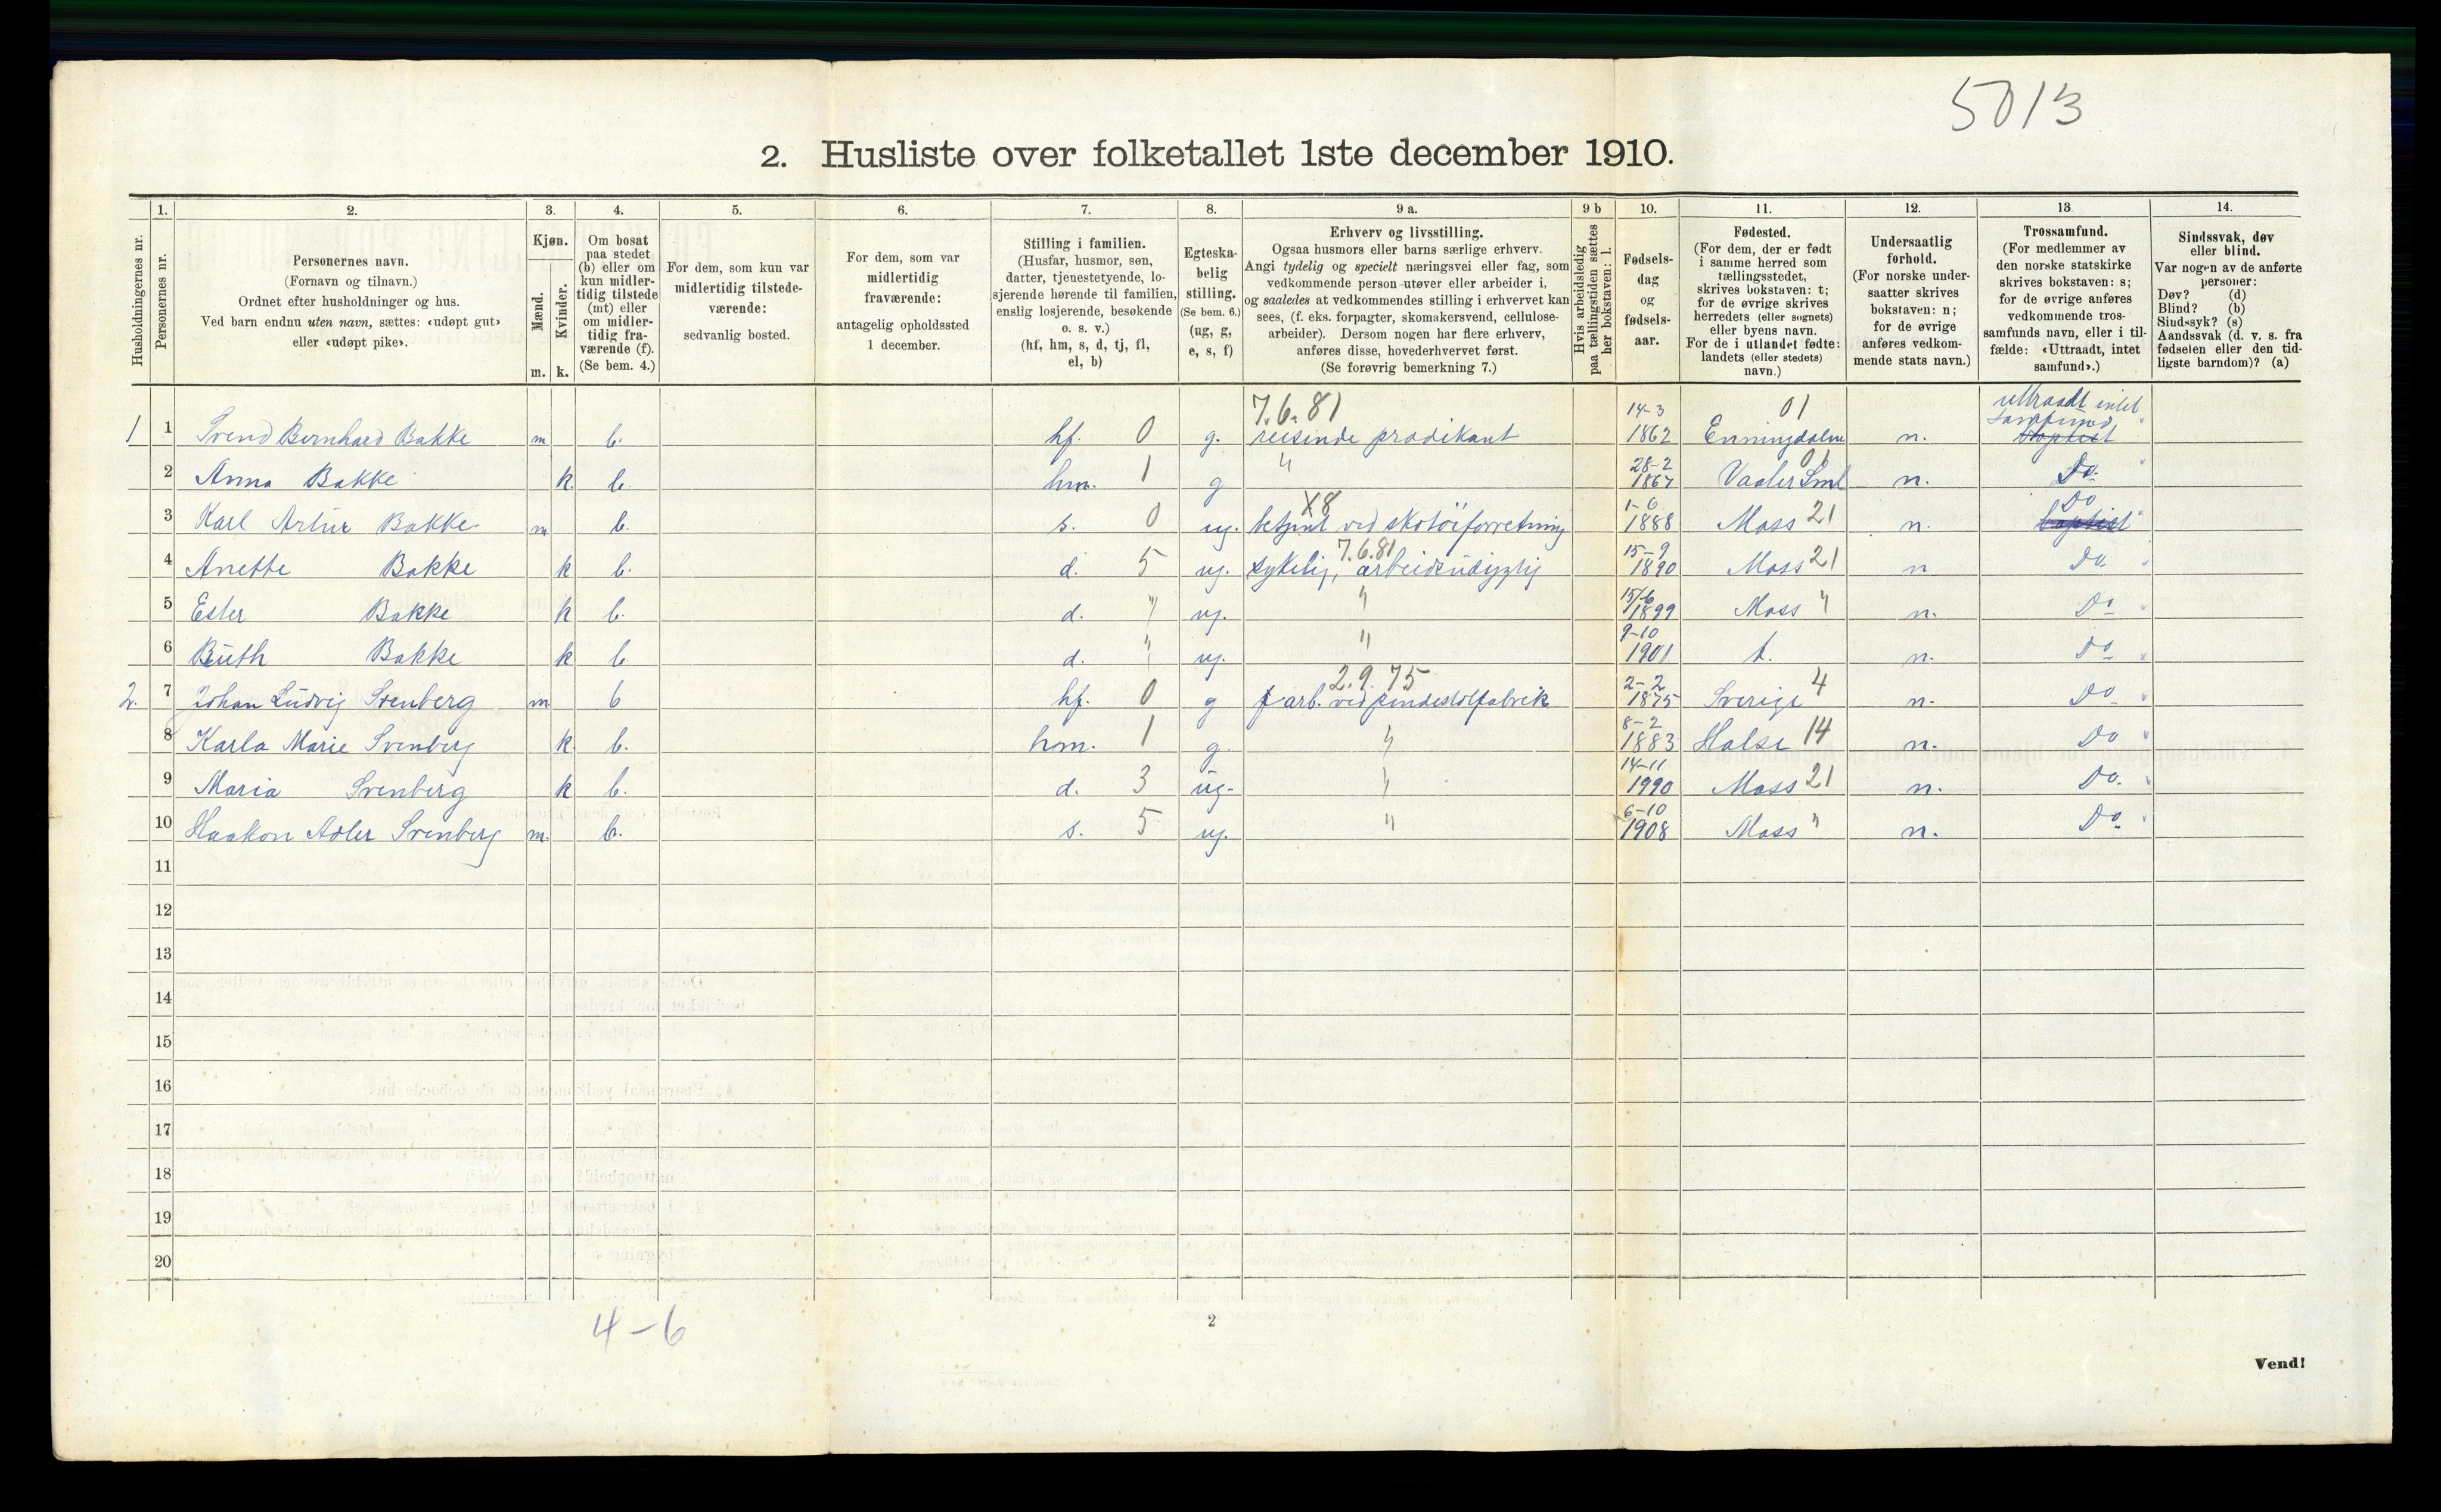 5013
2. Husliste over folketallet 1ste december 1910.
Husholdningernes nr.
1. Personernes nr.
2. Personernes navn.
(Fornavn og tilnavn.)
Ordnet efter husholdninger og hus.
Ved barn endnu uten navn, sættes: «udøpt gut»
eller «udøpt pike».
3. Kjøn.
Mænd. Kvinder.
m. k.
4. Om bosat
paa stedet
(b) eller om
kun midler-
tidig tilstede
(mt) eller
om midler-
tidig fra-
værende (f).
(Se bem. 4.)
5. For dem, som kun var
midlertidig tilstede-
værende:
sedvanlig bosted.
6. For dem, som var
midlertidig
fraværende:
antagelig opholdssted
1 december.
7. Stilling i familien.
(Husfar, husmor, søn,
datter, tjenestetyende, lo-
sjerende hørende til familien,
enslig losjerende, besøkende
o. s. v.)
(hf, hm, s, d, tj, fl,
el, b)
8. Egteska-
belig
stilling.
(Se bem. 6.)
(ug, g,
e, s, f)
9 a. Erhverv og livsstilling.
Ogsaa husmors eller barns særlige erhverv.
Angi tydelig og specielt næringsvei eller fag, som
vedkommende person utøver eller arbeider i,
og saaledes at vedkommendes stilling i erhvervet kan
sees, (f. eks. forpagter, skomakersvend, cellulose-
arbeider). Dersom nogen har flere erhverv,
anføres disse, hovederhvervet først.
(Se forøvrig bemerkning 7.)
9 b Hvis arbeidsledig
paa tællingstiden sættes
her bokstaven: l.
10. Fødsels-
dag
og
fødsels-
aar.
11. Fødested.
(For dem, der er født
i samme herred som
tællingsstedet,
skrives bokstaven: t;
for de øvrige skrives
herredets (eller sognets)
eller byens navn.
For de i utlandet fødte:
landets (eller stedets)
navn.)
12. Undersaatlig
forhold.
(For norske under-
saatter skrives
bokstaven: n;
for de øvrige
anføres vedkom-
mende stats navn.)
13. Trossamfund.
(For medlemmer av
den norske statskirke
skrives bokstaven: s;
for de øvrige anføres
vedkommende tros-
samfunds navn, eller i til-
fælde: «Uttraadt, intet
samfund».)
14. Sindssvak, døv
eller blind.
Var nogen av de anførte
personer:
Døv? (d)
Blind? (b)
Sindssyk? (s)
Aandssvak (d. v. s. fra
fødselen eller den tid-
ligste barndom)? (a)
7.6.81 14-3 01 uttraadt intet samfund
1 1 Svend Bernhard Bakke m b. hf. 0 g. reisende prædikant 1862 Enningdalen n. baptist
2 Anna Bakke k. b. hm. 1 g " 28-2 1867 Vaaler Sml 01 n. Do
3 Karl Artur Bakke m b. s. 0 ug. betjent ved skotöiforretning X8 1-6 1888 Moss 21 n. baptist Do
4 Anette Bakke k b. d. 5 ug. sykelig, arbeidsudygtig 7.6.81 15-9 1890 Moss 21 n Do
5 Ester Bakke k b. d. " ug. " 15/6 1899 Moss " n. Do
6 Ruth Bakke k b d. " ug. " 9-10 1901 t. n. Do
2. 7 Johan Ludvig Svenberg m b hf. 0 g arb. ved pindestolfabrik 2.9.75 2-2 1875 Sverige 4 n. Do
8 Karla Marie Svenberg k b. hm. 1 g. " 8-2 1883 Halse 14 n. Do
9 Maria Svenberg k b. d. 3 ug- " 14-11 1990 Moss 21 n. Do.
10 Haakon Adler Svenberg m. b. s. 5 ug. " 6-10 1908 Moss " n. Do
11
12
13
14
15
16
17
18
19
20
4-6
2
Vend!